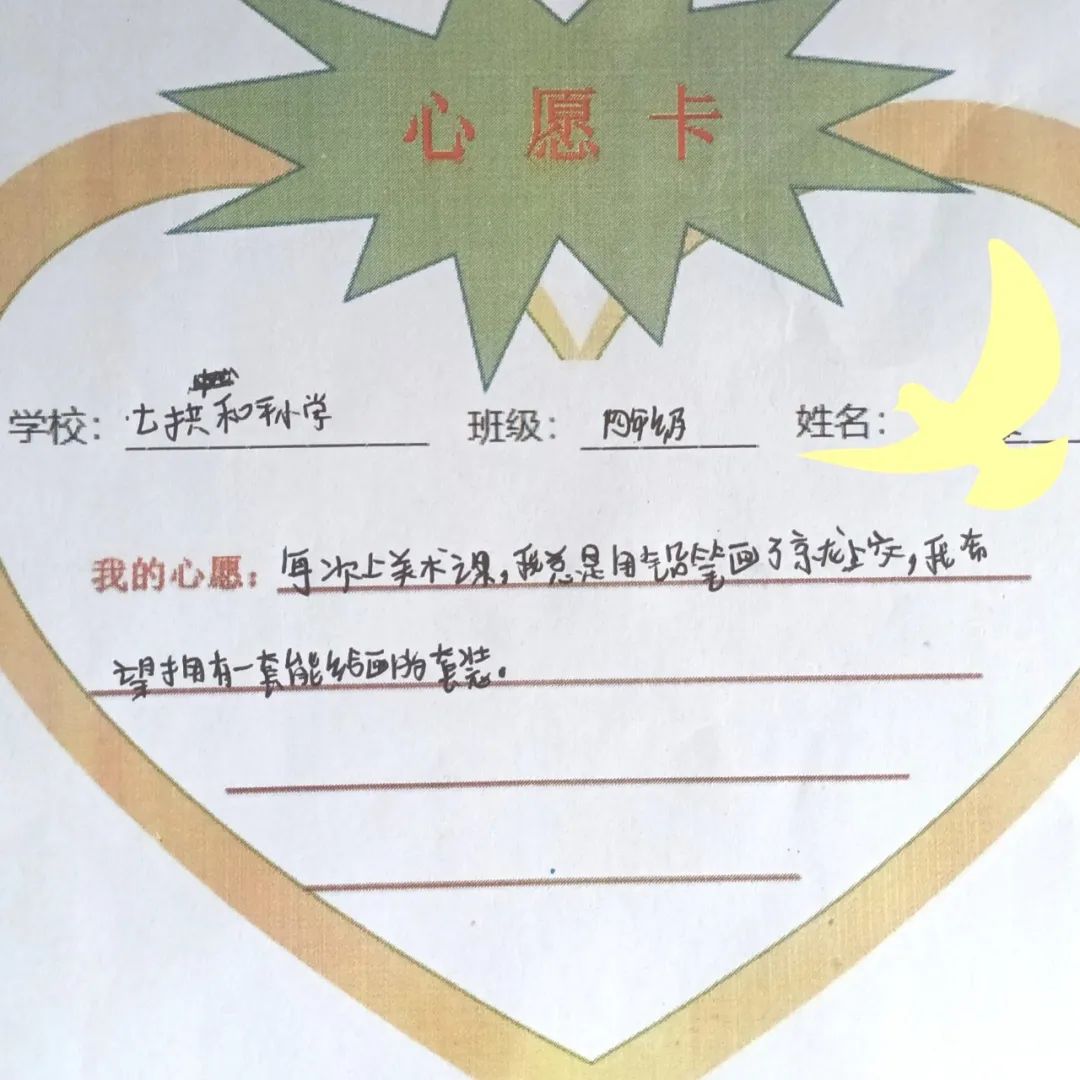 心愿卡
学校: 七拱和平小学 班级: 四年级 姓名:
我的心愿: 每次上美术课,我总是用铅笔画了就上交,我希
望拥有一套能绘画的套装。